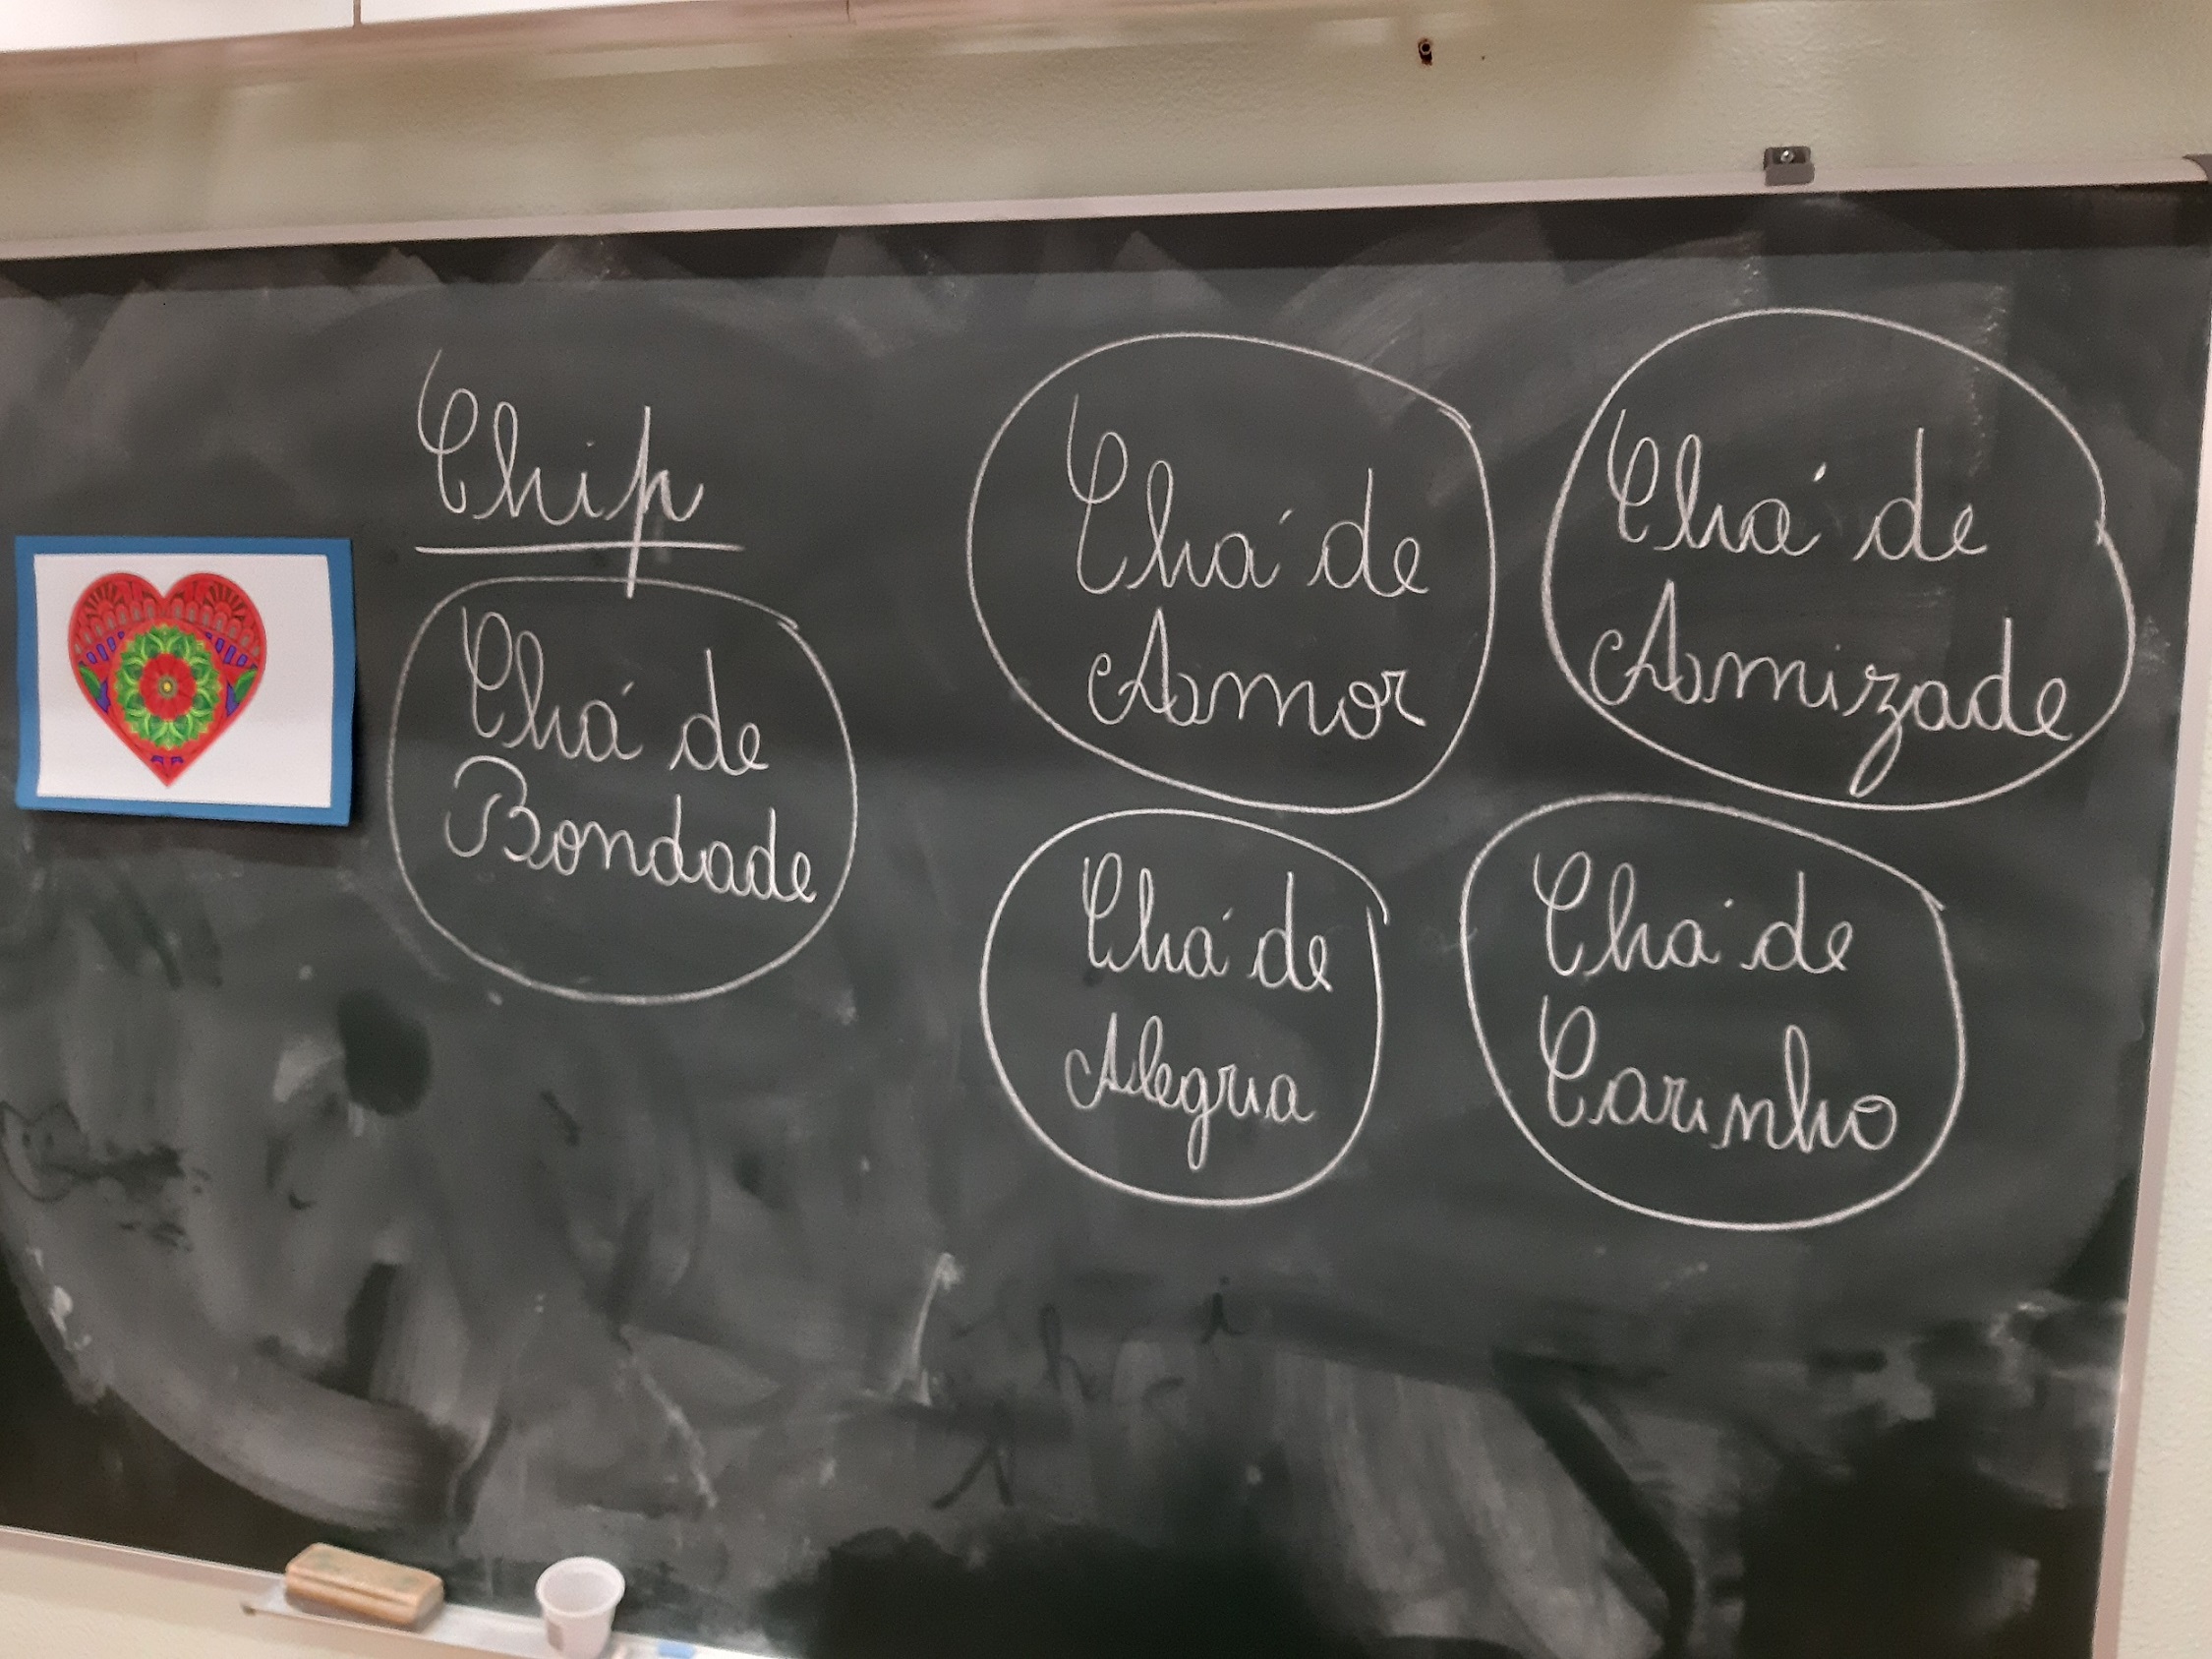 Chip
Chá de
Bondade
Chá de
Amor
Chá de
Amizade
Chá de
Alegria
Chá de
Carinho